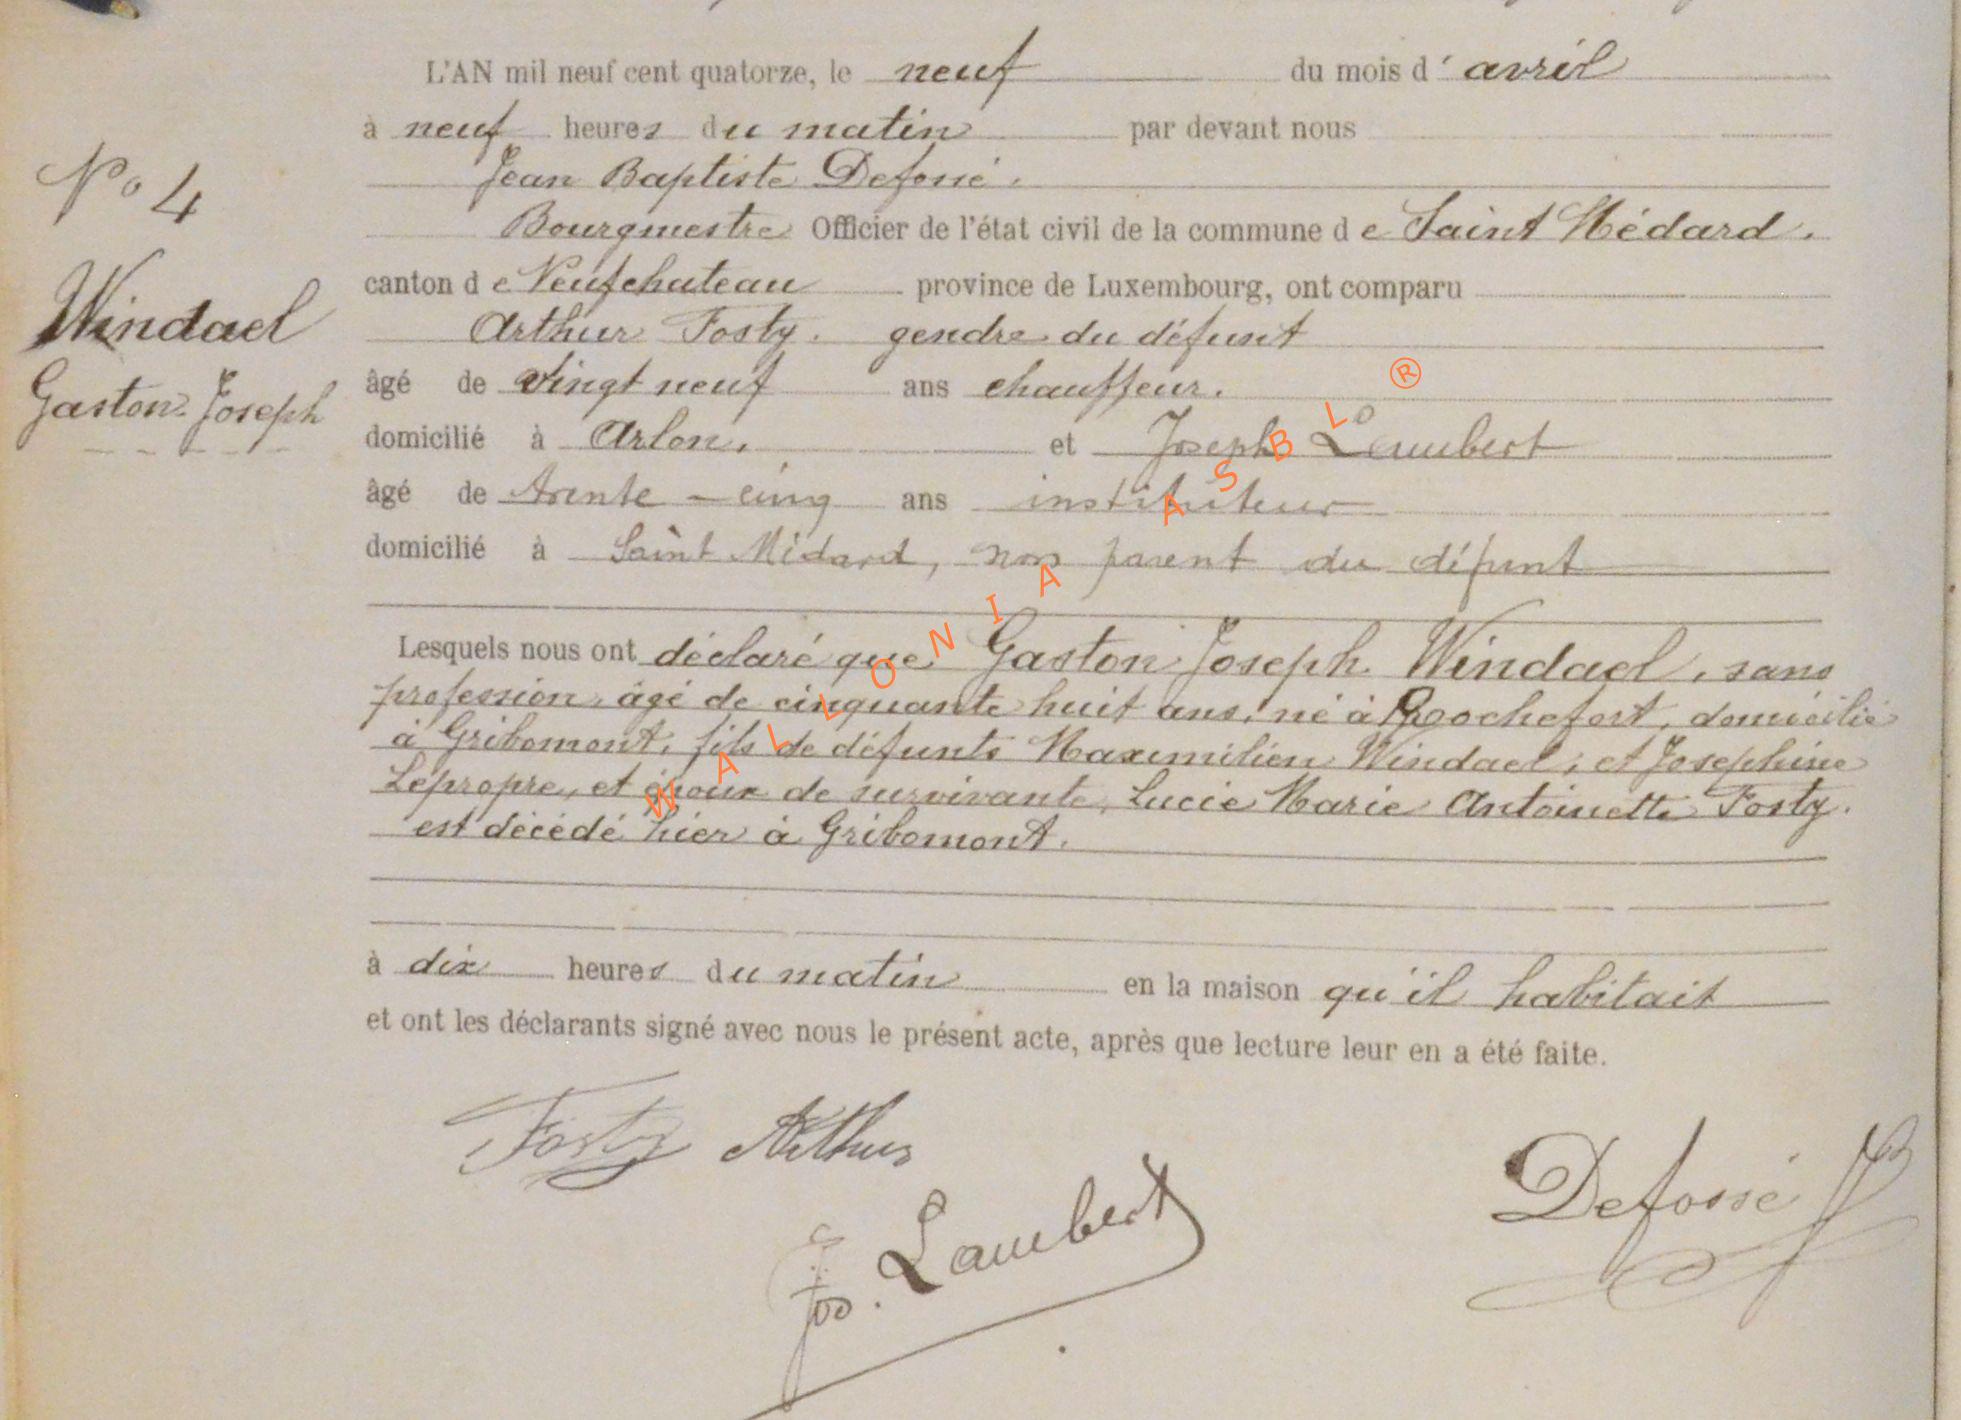 L'AN mil neuf cent quatorze, le neuf du mois d' avril
à neuf heures du matin par devant nous
Jean Baptiste Defossé.
Bourgmestre Officier de l'état civil de la commune de Saint Médard.
canton de Neufchateau province de Luxembourg, ont comparu
Arthur Fosty. gendre du défunt
âgé de vingt neuf ans chauffeur.
domicilié à Arlon. et Joseph Lambert
âgé de trente-cinq ans instituteur
domicilié à Saint Médard, non parent du défunt
N° 4
Windael
Gaston Joseph
Lesquels nous ont déclaré que Gaston Joseph Windael, sans
profession, âgé de cinquante huit ans, né à Rochefort, domicilié
à Gribomont, fils de défunts Maximilien Windael, et Josephine
Lepropre, et époux de survivante, Lucie Marie Antoinette Fosty.
est décédé hier à Gribomont.
à dix heures du matin en la maison qu'il habitait
et ont les déclarants signé avec nous le présent acte, après que lecture leur en a été faite.
Fosty Arthur
Jos. Lambert
Defossé JB
WALLONIA ASBL ®